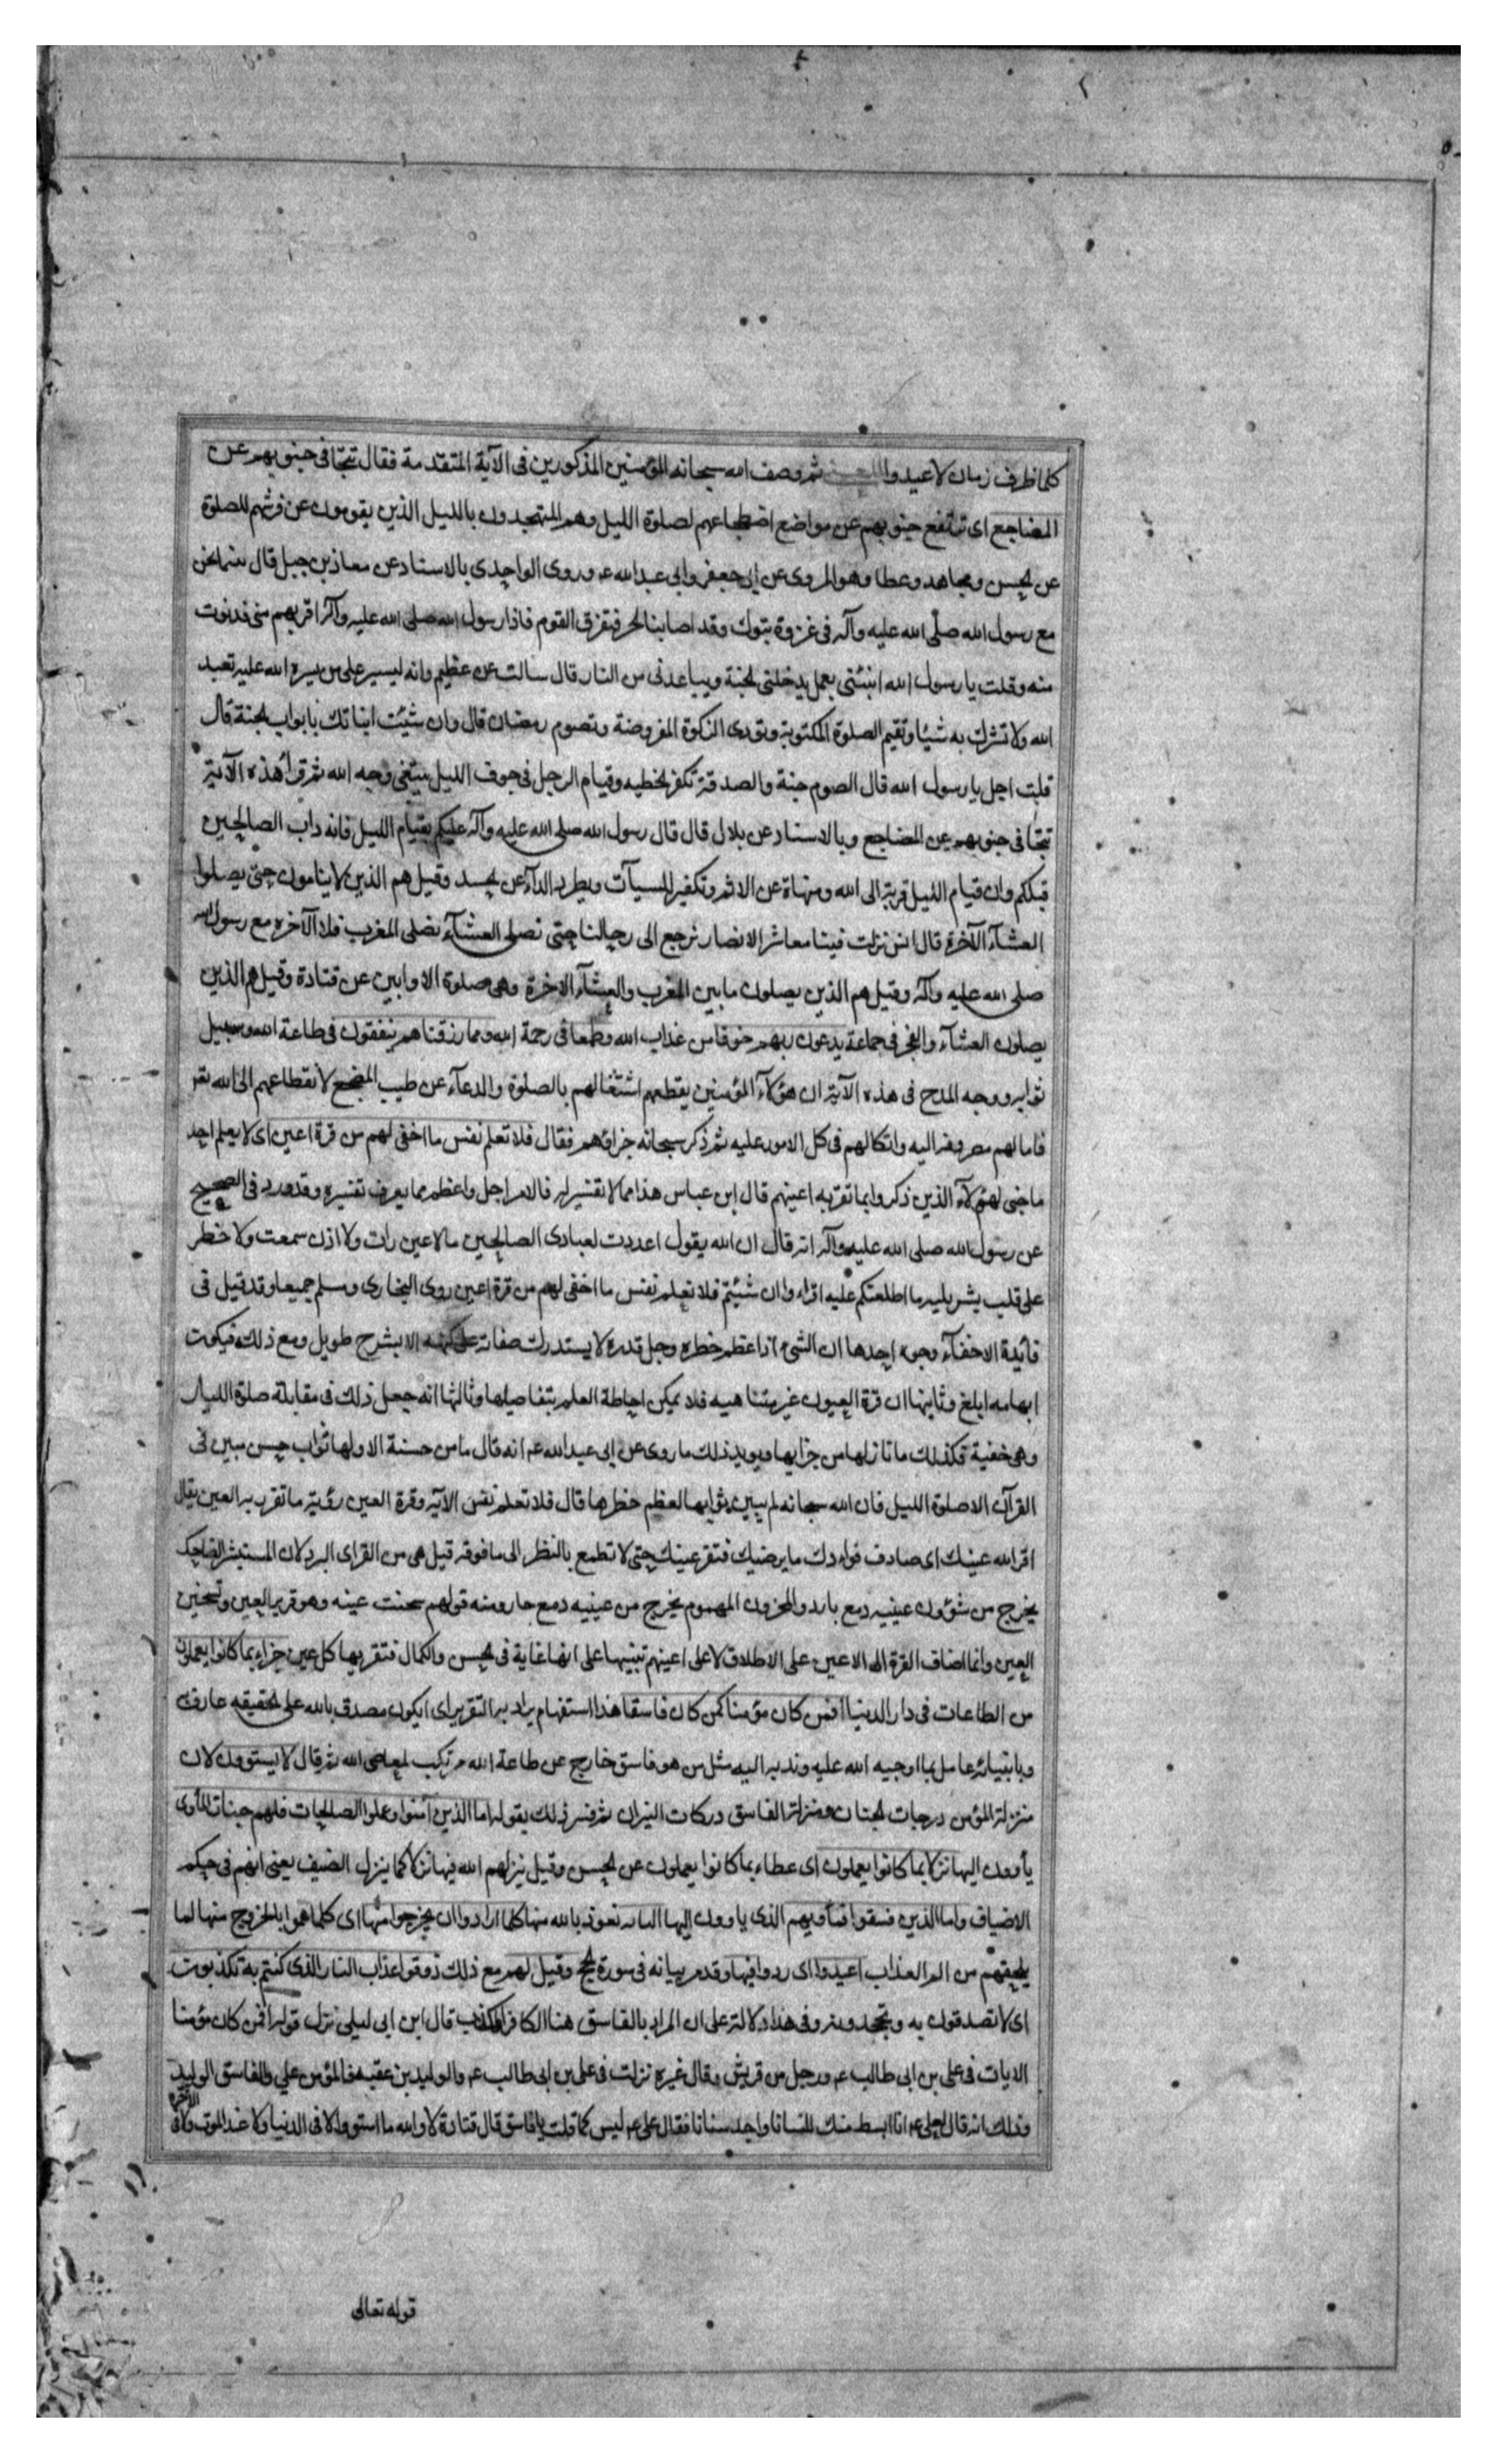 كلما ظرف زمان لاعيدوا ثم وصف الله سبحانه المؤمنين المذكورين فى الآية المتقدمة فقال تتجافى جنوبهم عن
المضاجع اى ترتفع جنوبهم عن مواضع اضطجاعهم لصلوة الليل وهم المتهجدون بالليل الذين يقومون عن فرشهم للصلوة
عن الحسن ومجاهد وعطا وهو المروى عن ابى جعفر وابى عبد الله ع وروى الواحدى بالاسناد عن معاذ بن جبل قال بينما نحن
مع رسول الله صلى الله عليه وآله فى غزوة تبوك وقد اصابنا الحر فتفرق القوم فاذا رسول الله صلى الله عليه وآله اقربهم منى فدنوت
منه وقلت يا رسول الله انبئنى بعمل يدخلنى الجنة ويباعدنى من النار قال سالت عن عظيم وانه ليسير على من يسره الله عليه تعبد
الله ولا تشرك به شيئا وتقيم الصلوة المكتوبة وتودى الزكوة المفروضة وتصوم رمضان قال وان شيئت انباتك بابواب الجنة قال
قلت اجل يا رسول الله قال الصوم جنة والصدقة تكفر الخطيه وقيام الرجل فى جوف الليل يبتغى وجه الله ثم قرا هذه الآية
تتجافى جنوبهم عن المضاجع وبالاسناد عن بلال قال قال رسول الله صلى الله عليه وآله عليكم بقيام الليل فانه داب الصالحين
قبلكم وان قيام الليل قربة الى الله ومنهاة عن الاثم وتكفير للسيآت ويطرد الدآء عن الجسد وقيل هم الذين لا ينامون حتى يصلوا
العشآء الآخرة قال انس نزلت فينا معاشر الانصار نرجع الى رحالنا حتى نصلى العشآء نصلى المغرب فلا الآخره مع رسول الله
صلى الله عليه وآله وقيل هم الذين يصلون ما بين المغرب والعشآء الاخرة وهى صلوة الاوابين عن قتادة وقيل هم الذين
يصلون العشآء والفجر فى جماعة يدعون ربهم خوفا من عذاب الله وطمعا فى رحمة الله ومما رزقناهم ينفقون فى طاعة الله وسبيل
ثوابه ووجه المدح فى هذه الآية ان هؤلآء المؤمنين يقطعهم اشتغالهم بالصلوة والدعآء عن طيب المضجع لانقطاعهم الى الله تع
فامالهم مصروفه اليه واتكالهم فى كل الامور عليه ثم ذكر سبحانه جزاؤهم فقال فلا تعلم نفس ما اخفى لهم من قرة اعين اى لا يعلم احد
ما خبى لهؤلآء الذين ذكروا بما تقر به اعينهم قال ابن عباس هذا مما لا تفسير له فالامر اجل واعظم مما يعرف تفسيره وقد ورد فى الصحيح
عن رسول الله صلى الله عليه وآله انه قال ان الله يقول اعددت لعبادى الصالحين ما لا عين رات ولا اذن سمعت ولا خطر
على قلب بشر بله ما اطلعتكم عليه اقراوا ان شيئتم فلا تعلم نفس ما اخفى لهم من قرة اعين روى البخارى ومسلم جميعا وقد قيل فى
فائدة الاخفآء وجوه احدها ان الشىء اذا عظم خطره وجل قدره لا يستدرك صفاته على كنهه الا بشرح طويل ومع ذلك فيكون
ابهامه ابلغ وثانيها ان قرة العيون غير متناهيه فلا يمكن احاطة العلم بتفاصيلها وثالثها انه جعل ذلك فى مقابلة صلوة الليل
وهى خفية فكذلك ما بازائها من جزايها ويويد ذلك ما روى عن ابى عبد الله ع انه قال ما من حسنة الا ولها ثواب حسن مبين فى
القرآن الا صلوة الليل فان الله سبحانه لم يبين ثوابها لعظم خطرها قال فلا تعلم نفس الآية وقرة العين رؤية ما تقر به العين يقال
اقر الله عينك اى صادف فوادك ما يرضيك فتقر عينك حتى لا تطمع بالنظر الى ما فوقه قيل هى من القراى البرد لان المستبشر الضاحك
يخرج من شؤون عينيه دمع بارد والمحزون المهموم يخرج من عينيه دمع حار ومنه قولهم سخنت عينه وهو قرير العين وسخين
العين وانما اضاف القرة الى الاعين على الاطلاق لا على اعينهم تنبيها على انها غاية فى الحسن والكمال فتقر بها كل عين جزاء بما كانوا يعملون
من الطاعات فى دار الدنيا افمن كان مؤمنا كمن كان فاسقا هذا استفهام يراد به التقرير اى ايكون مصدق بالله على الحقيقه عارف
وبانبيائه عامل بما اوجبه الله عليه وندبه اليه مثل من هو فاسق خارج عن طاعة الله مرتكب لمعاصى الله ثم قال لا يستوون لان
منزلة المؤمن درجات الجنان ومنزلة الفاسق دركات النيران ثم فسر ذلك بقوله اما الذين آمنوا وعملوا الصالحات فلهم جنات المأوى
يأوون اليها نزلا بما كانوا يعملون اى عطاء بما كانوا يعملون عن الحسن وقيل ينزلهم الله فيها نزلا كما ينزل الضيف يعنى انهم فى حكم
الاضياف واما الذين فسقوا فمأويهم الذى ياوون اليها النار نعوذ بالله منها كلما ارادوا ان يخرجوا منها اى كلما هموا بالخروج منها لما
يلحقهم من الم العذاب اعيدوا اى ردوا فيها وقد مر بيانه فى سورة الحج وقيل لهم مع ذلك ذوقوا عذاب النار الذى كنتم به تكذبون
اى لا تصدقون به وتجحدونه وفى هذا دلالة على ان المراد بالفاسق هنا الكافر المكذب قال ابن ابى ليلى نزل قوله افمن كان مؤمنا
الايات فى على بن ابى طالب ع ورجل من قريش وقال غيره نزلت فى على بن ابى طالب ع والوليد بن عقبه فالمؤمن على والفاسق الوليد
وذلك انه قال لعلى ع انا ابسط منك لسانا واحد سنانا فقال على ع ليس كما قلت يا فاسق قال قتادة لا والله ما استووا لا فى الدنيا ولا عند الموت ولا فى الآخرة
قوله تعالى